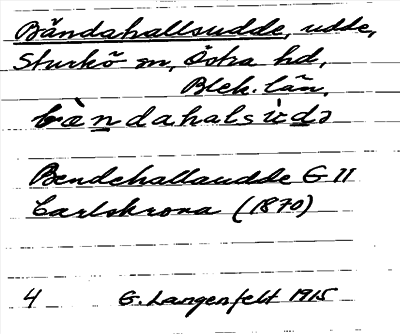 Bändahallsudde, udde,
Sturkö sn, Östra hd,
Blek. län.
bàndahalsùdə
Bendehallaudde G 11
Carlskrona (1870)
4 G. Langenfelt 1915